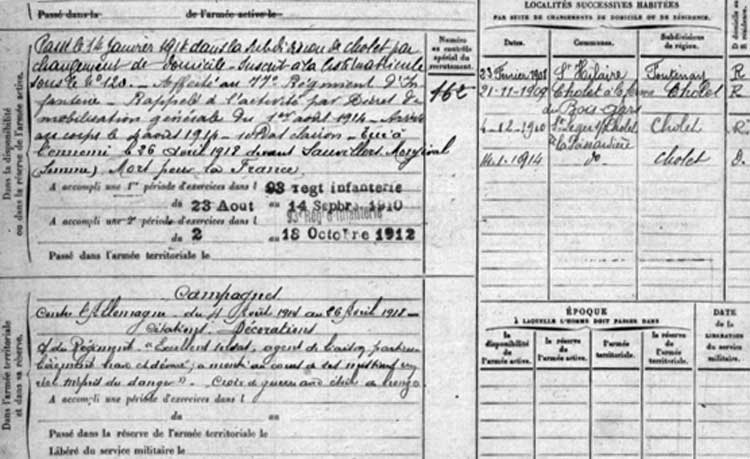 Passé dans
de l'armée active le
Dans la disponibilité
ou dans la réserve de l'armée active.
Passé le 14 Janvier 1914 dans la subdivision de Cholet par
changement de domicile - Inscrit à la liste matricule
sous le N° 120. - Affecté au 77e Régiment d'In-
fanterie - Rappelé à l'activité par Décret de
mobilisation générale du 1er août 1914 - Arrivé
au corps le 4 août 1914 - Soldat clairon - Tué à
l'ennemi le 26 Avril 1918 devant Sauvillers Mongival
(Somme) Mort pour la France,
A accompli une 1re période d'exercices dans l 93 regt infanterie
du 23 Aout au 14 Sepbre 1910
A accompli une 2e période d'exercices dans l 93e Reg d'Infanterie
du 2 au 18 Octobre 1912
Passé dans l'armée territoriale le
Numéro
au contrôle
spécial du
recrutement.
162
LOCALITÉS SUCCESSIVES HABITÉES
PAR SUITE DE CHANGEMENTS DE DOMICILE OU DE RÉSIDENCE.
Dates.
Communes.
Subdivisions
de région.
D
ou R
23 Février 1908 St Hilaire Fontenay R
21-11-1909 Cholet Cholet R
du Bois Gars
4-12-1910 St Léger s/ Cholet Cholet R
la
14-1-1914 do Cholet D.
Dans l'armée territoriale
et dans sa réserve.
Campagnes
Contre l'Allemagne du 4 Août 1914 au 26 Avril 1918 -
Citations Décorations
du Régiment "Excellent soldat, agent de liaison
a montré au cours de ses missions un
réel mépris du danger". - Croix de guerre
A accompli une période d'exercices dans l
du au
Passé dans la réserve de l'armée territoriale le
Libéré du service militaire le
ÉPOQUE
À LAQUELLE L'HOMME DOIT PASSER DANS
la
disponibilité
de
l'armée active.
la réserve
de
l'armée active.
l'armée
territoriale.
la réserve
de l'armée
territoriale.
DATE
de la
LIBÉRATION
du service
militaire.